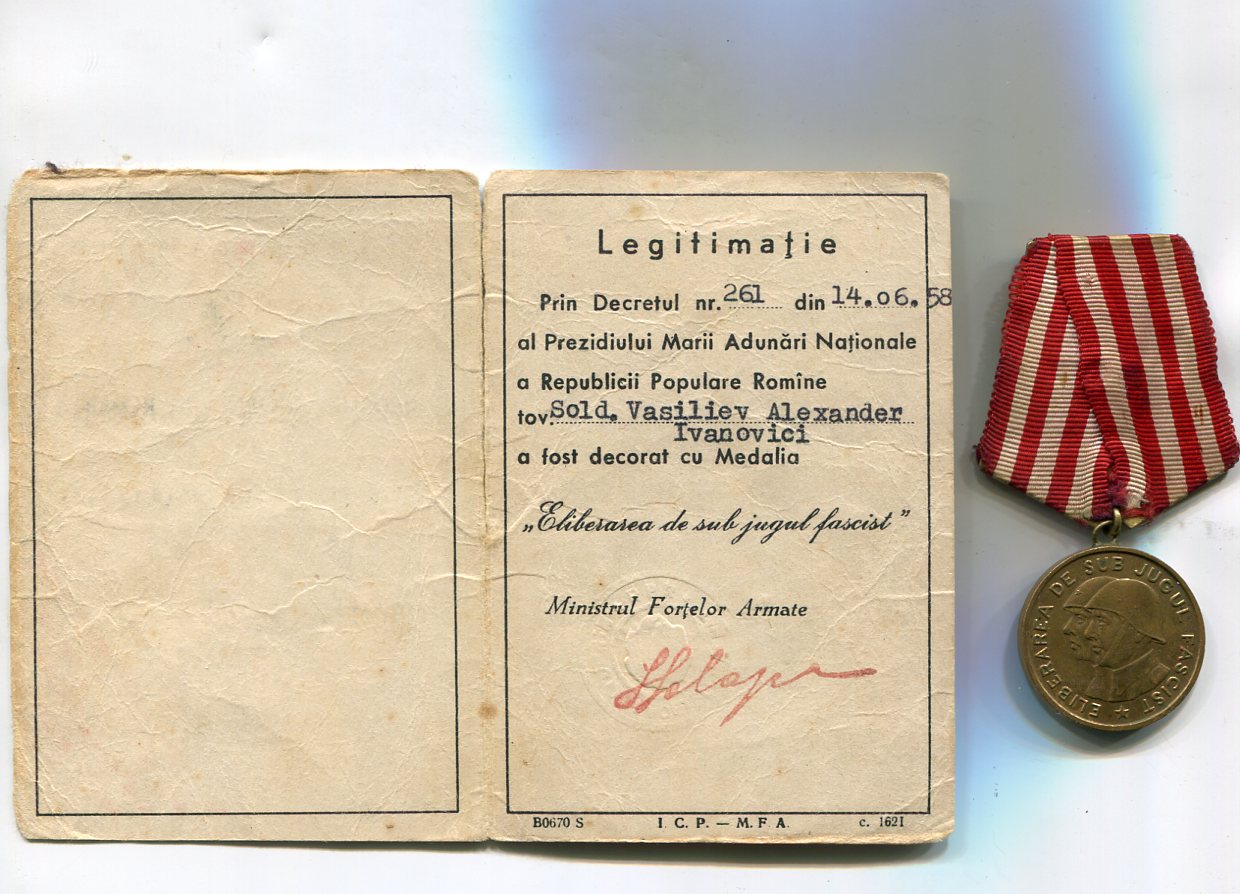 Legitimație
Prin Decretul nr. 261 din 14.06.58
al Prezidiului Marii Adunări Naționale
a Republicii Populare Romîne
tov. Sold. Vasiliev Alexander
Ivanovici
a fost decorat cu Medalia
„Eliberarea de sub jugul fascist”
Ministrul Forțelor Armate
B0670 S I. C. P. — M. F. A. c. 1621
ELIBERAREA DE SUB JUGUL FASCIST